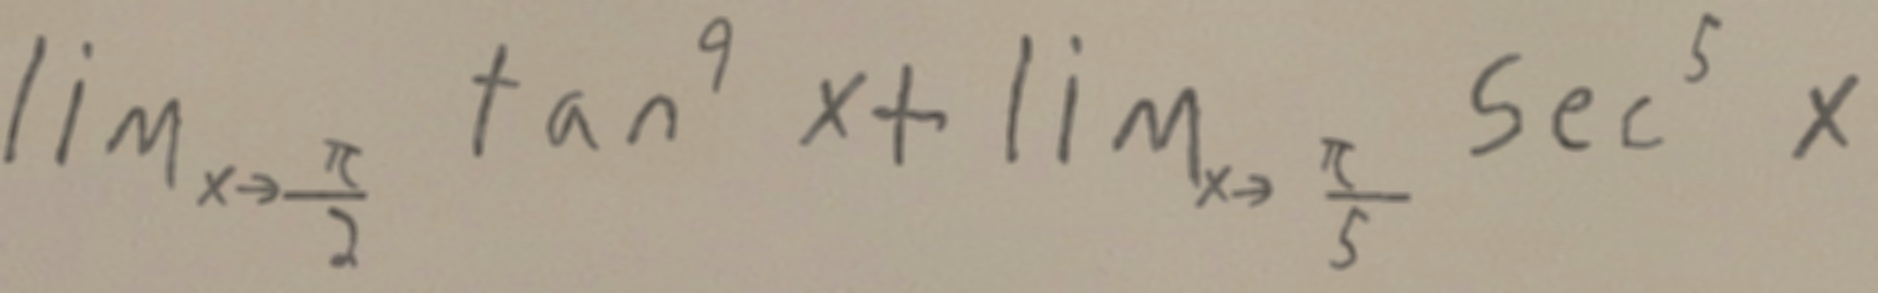 \lim_{x \to \frac{\pi}{2}} \tan^9 x + \lim_{x \to \frac{\pi}{5}} \sec^5 x